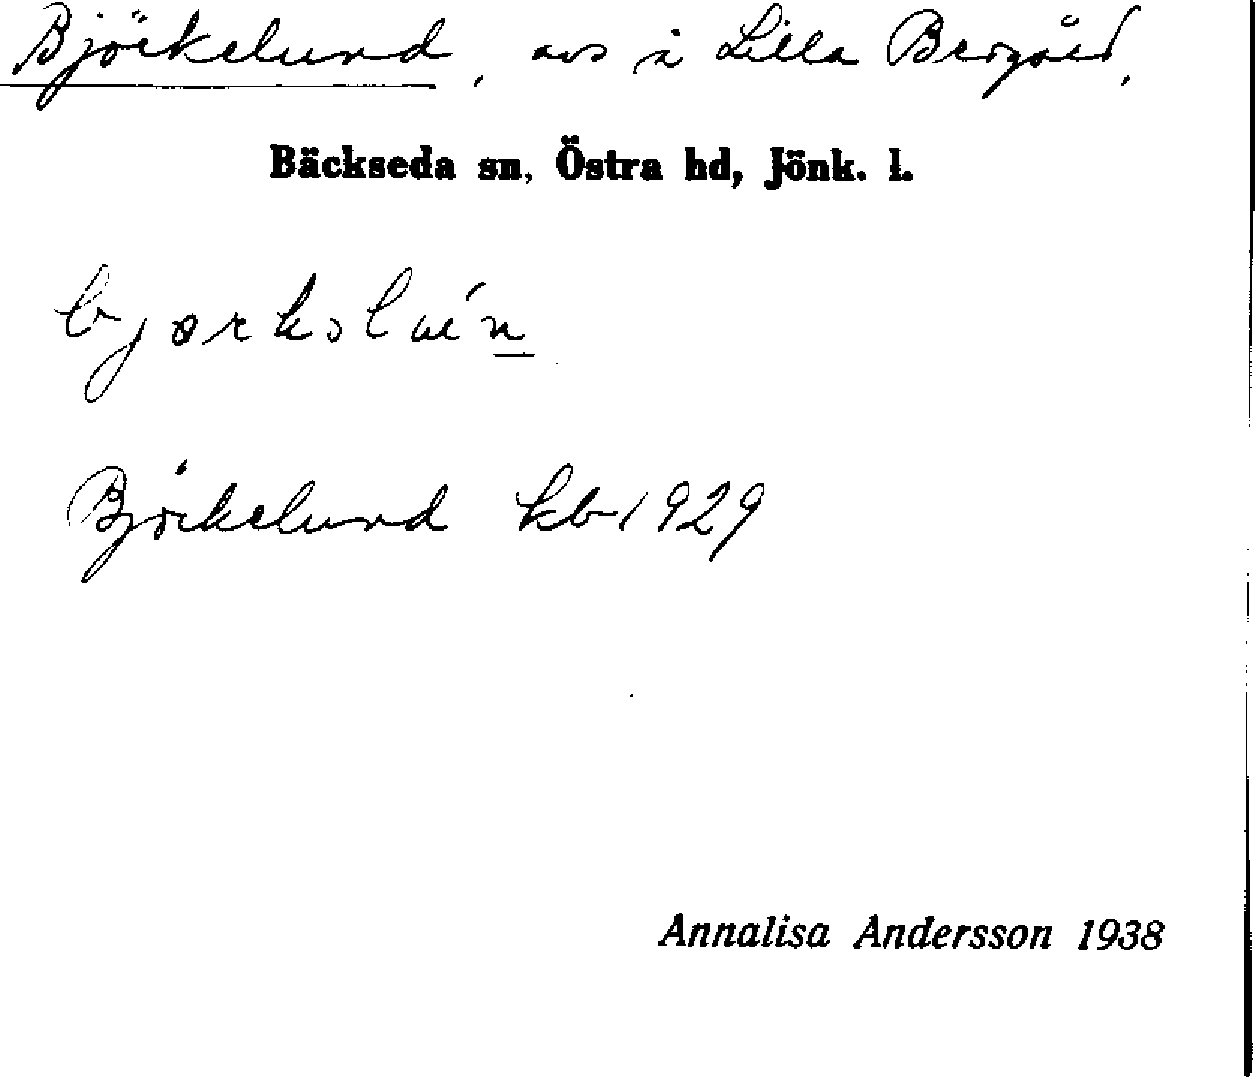 Björkelund, avs i Lilla Bergård,
Bäckseda sn, Östra hd, Jönk. l.
Björkelund kb 1929
Annalisa Andersson 1938